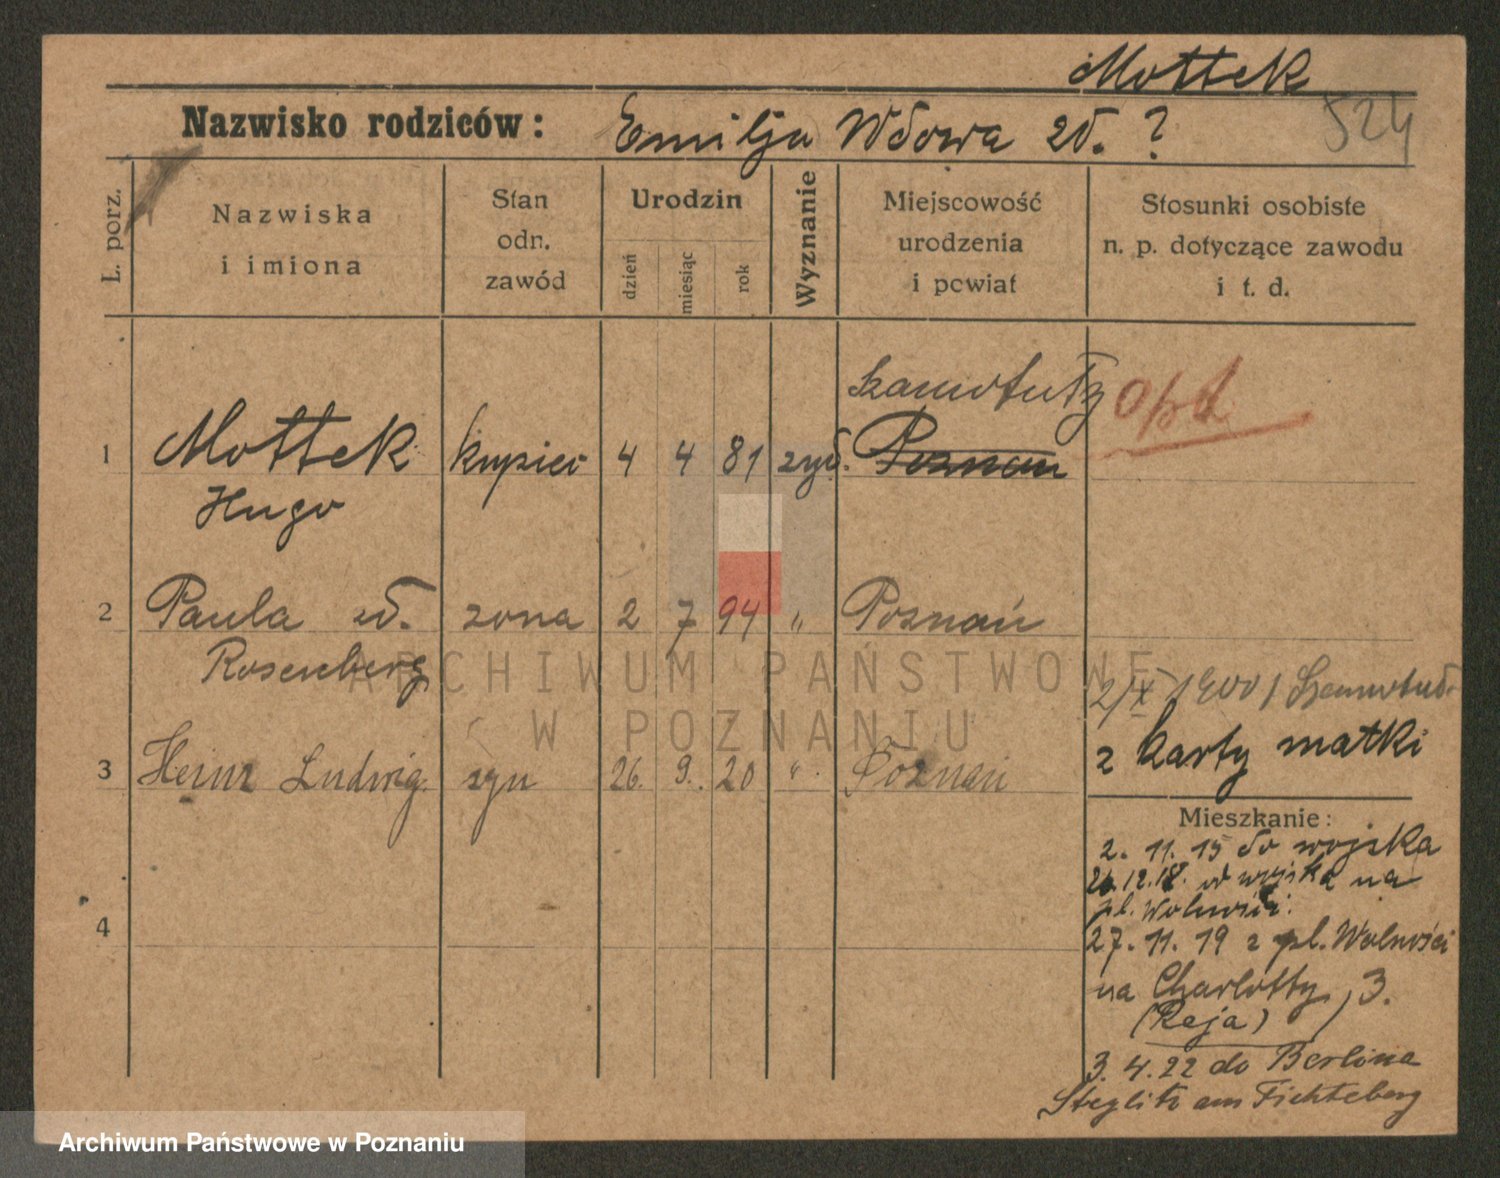 Mottek
524
Nazwisko rodziców: Emilja Wdowa zd. ?
L. porz.
Nazwiska
i imiona
Stan
odn.
zawód
Urodzin
dzień
miesiąc
rok
Wyznanie
Miejscowość
urodzenia
i powiat
Stosunki osobiste
n. p. dotyczące zawodu
i t. d.
Szamotuły
1 Mottek kupiec 4 4 81 żyd. Poznań
Hugo
2 Paula zd. żona 2 7 94 " Poznań
Rosenberg
3 Heinz Ludwig. syn 26. 9. 20 " Poznań
4
2/X 1900 / Szamotuł.
z karty matki
Mieszkanie:
2. 11. 15 do wojska
12.18. od wojska na
pl. Wolności.
27. 11. 19 z pl. Wolności
na Charlotty, 3.
(Reja)
3. 4. 22 do Berlina
Steglitz am Fichteberg
ARCHIWUM PAŃSTWOWE
W POZNANIU
Archiwum Państwowe w Poznaniu